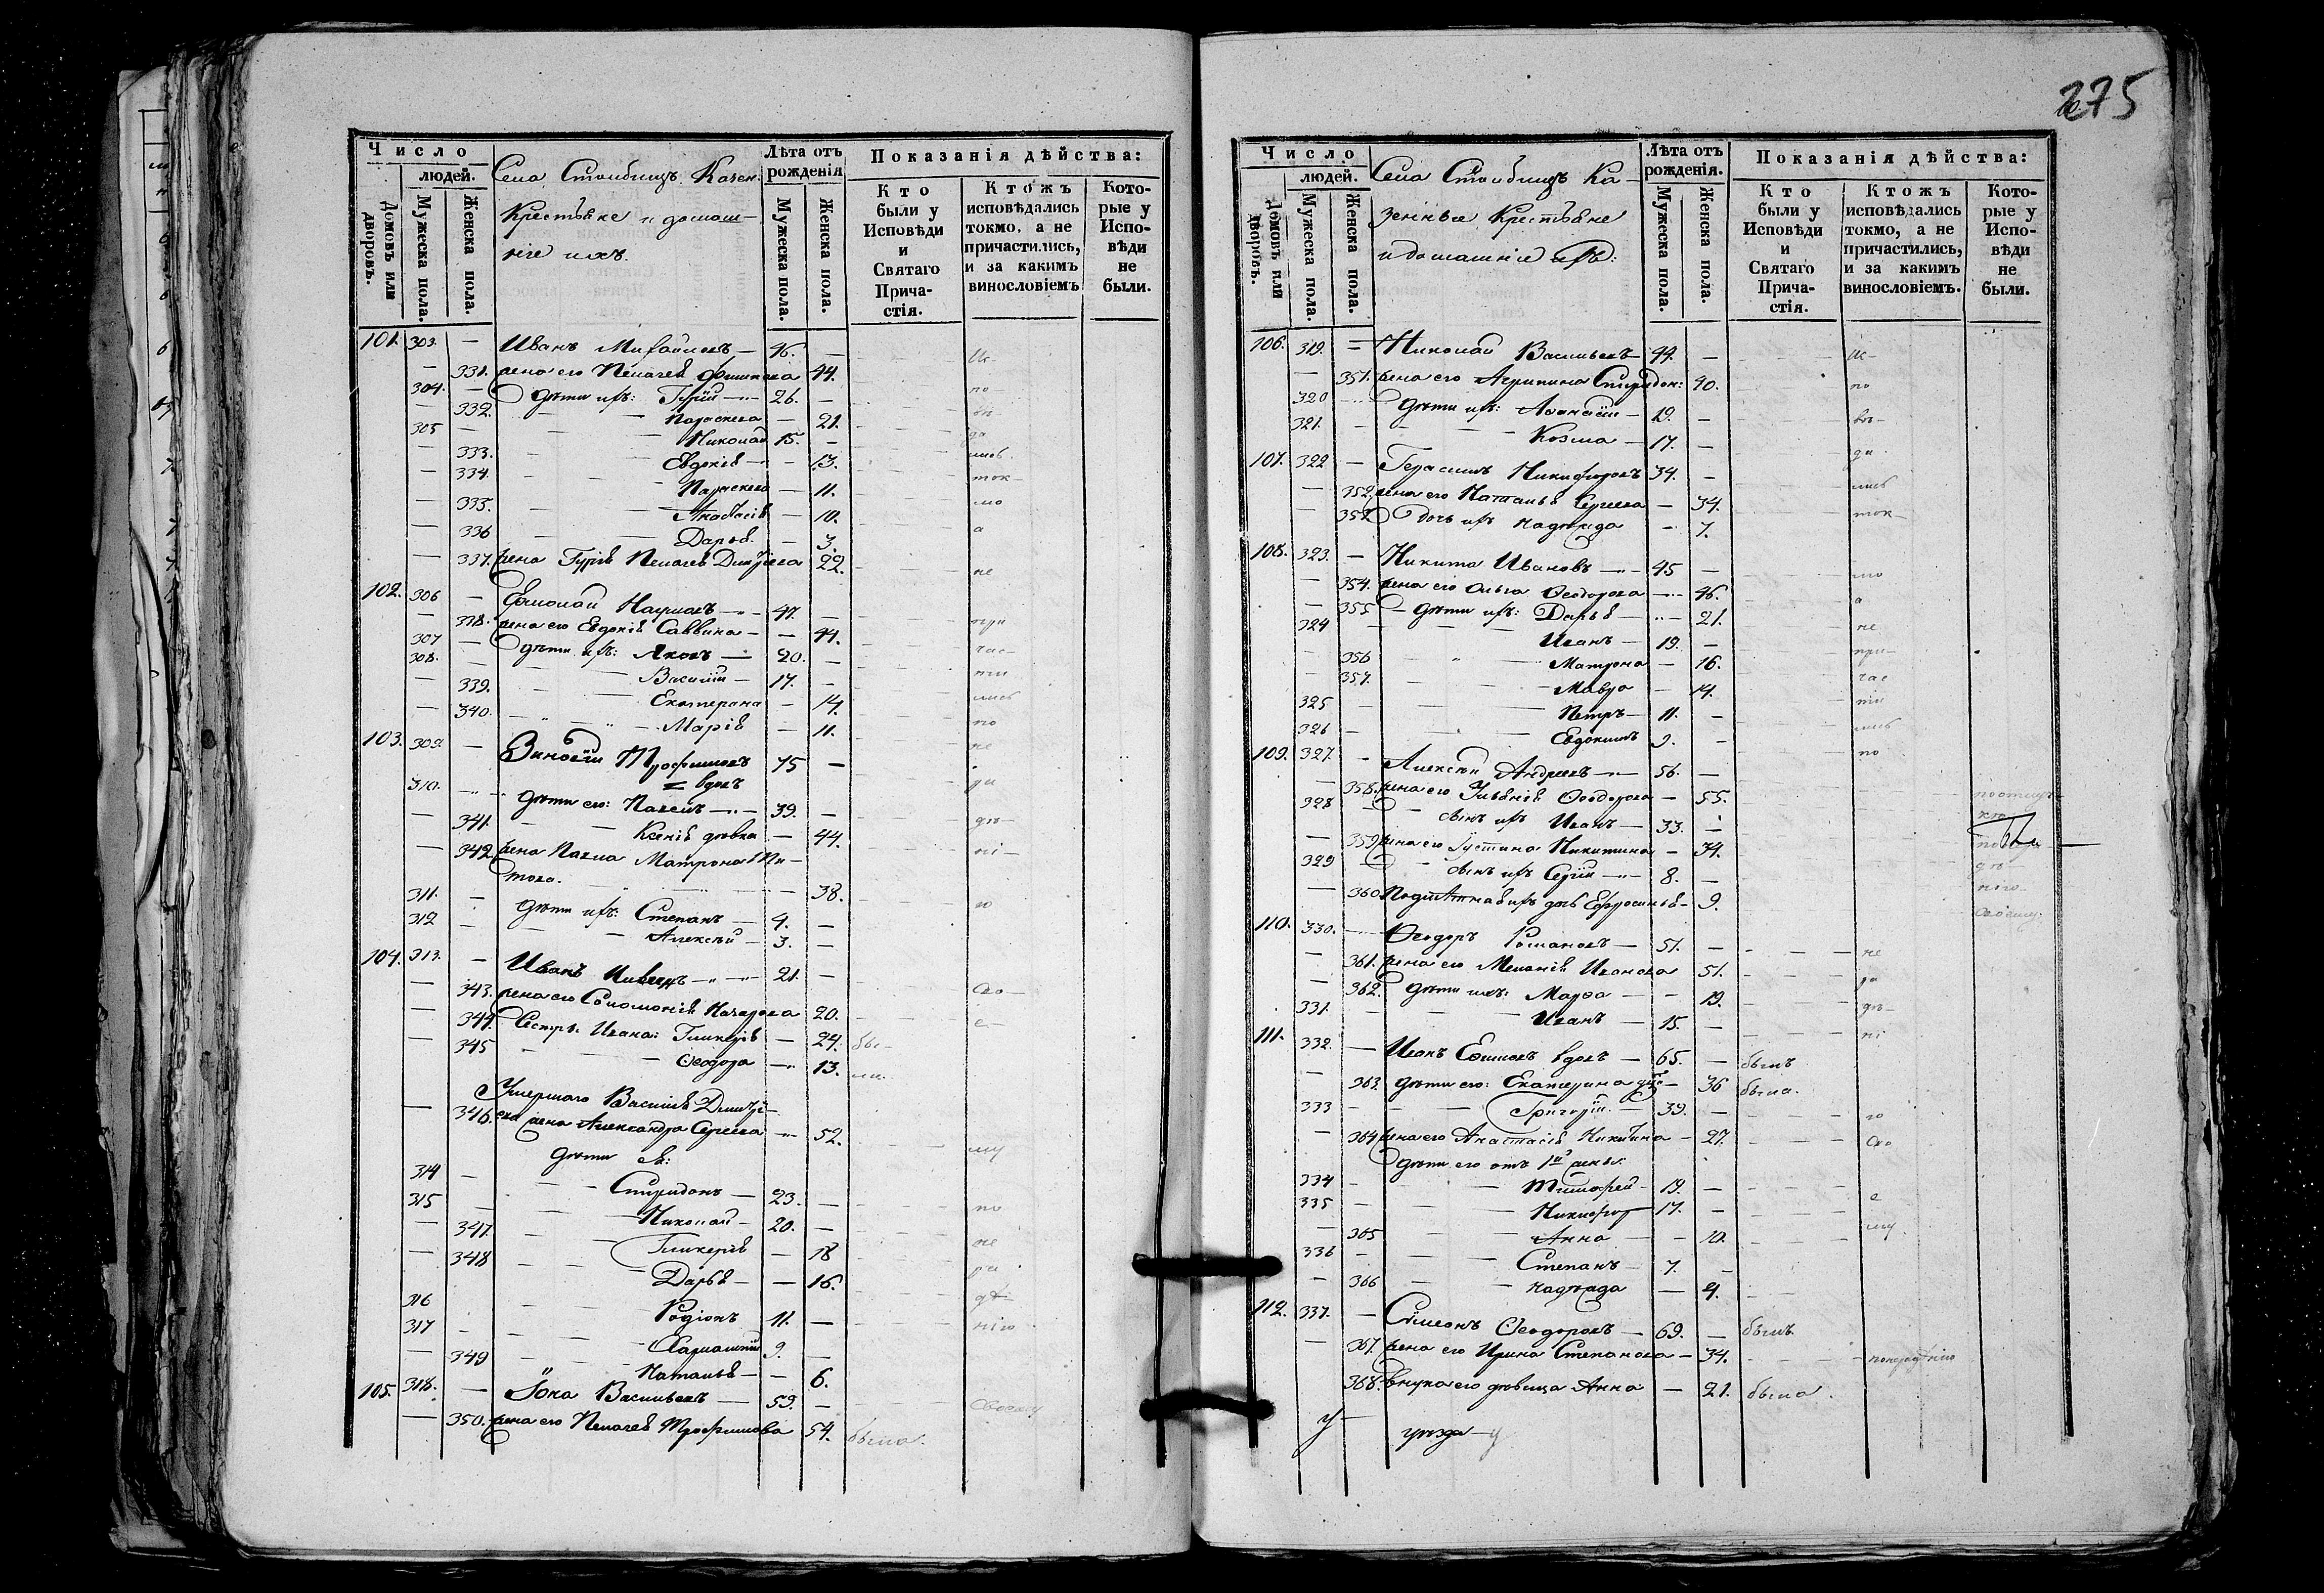 275
Число
людей.
Домовъ или дворовъ.
Мужеска пола.
Женска пола.
Села Столбищъ Казен.
Крестьяне и домаш-
ніе ихъ.
Лѣта отъ рожденія
Мужеска пола.
Женска пола.
Показанія дѣйства:
Кто были у Исповѣди и Святаго Прича-стія.
Ктожъ исповѣдались токмо, а не причастились, и за какимъ винословіемъ
Кото-рые у Испо-вѣди не были.
101. 303. — Иванъ Михайловъ — 46. —
— 331. жена его Пелагея 44.
304. — Дѣти ихъ: Гурій — 26. —
— 332. Параскева — 21.
305 — Николай 15. —
— 333. Евдокія — 13.
— 334. Параскева — 11.
— 335. Анастасія — 10.
— 336 Дарья — 3.
— 337. жена Гурія Пелагея Димитріева 22.
102. 306 — Ермолай Наумовъ — 47. —
— 338. жена его Евдокія Саввина — 44.
307 — дѣти ихъ: Яковъ — 20. —
308. — Василій — 17. —
— 339. Екатерина — 14.
— 340. Марія — 11.
103. 309. — Зиновій Трофимовъ 75 —
вдовъ
310. — дѣти его: Павелъ — 39. —
— 341. Ксенія дѣвка — 44.
— 342. жена Павла Матрона Ти-
това. — 38.
311. — дѣти ихъ: Степанъ — 4. —
312 — Алексѣй — 3. —
104. 313. — Иванъ 21. —
— 343. жена его Соломонія Назарова 20.
— 344. Сестры Ивана: Гликерія — 24.
— 345 Ѳеодора — 13.
Умершаго Василія Димитрі-
— 346. ева жена Александра Сергеева — 52.
дѣти ея:
314 — Спиридонъ — 23. —
315 — Николай — 20. —
— 347. Гликерія — 18
— 348 Дарья — 16.
316 Родіонъ 11. —
317 — Харлампій 9. —
— 349 Наталья — 6.
105. 318. — Іона Васильевъ — 59. —
— 350. жена его Пелагея Трофимова 54. была.
Число
людей.
Домовъ или дворовъ.
Мужеска пола.
Женска пола.
Села Столбищъ Ка-
зенные Крестьяне
и домашніе ихъ:
Лѣта отъ рожденія.
Мужеска пола.
Женска пола.
Показанія дѣйства:
Кто были у Исповѣди и Святаго Прича-стія.
Ктожъ исповѣдались токмо, а не причастились, и за какимъ винословіемъ.
Кото-рые у Испо-вѣди не были.
106. 319. — Николай Васильевъ — 44. —
— 351. жена его Агрипина Спиридон: 40.
320 — дѣти ихъ: Аѳанасій — 19. —
321. — Козма — 17. —
107. 322 — Герасимъ Никифоровъ 34. —
— 352. жена его Наталья Сергеева — 34.
— дочь ихъ Надежда — 7.
108. 323. — Никита Ивановъ — 45 —
— 354. жена его Ольга Ѳеодорова — 46.
— 355 — дѣти ихъ: Дарья — 21.
324 — Иванъ — 19. —
— 356 Матрона — 16.
— 357. Мавра — 14.
325 — Петръ — 11. —
326 — Евдокимъ 9. —
109. 327. — Алексѣй Андреевъ — 56. —
— 358. жена его Ульянія Ѳеодорова — 55.
328 — сынъ ихъ Иванъ — 33. —
— 359. жена его Іустина Никитина — 34.
329 — сынъ ихъ Сергій — 8. —
— 360. ихъ Ефросинья — 9.
110. 330. — Ѳеодоръ Романовъ — 51. —
— 361. жена его Меланія Иванова 51.
— 362. дѣти ихъ: Марѳа — 19.
331. — Иванъ — 15. —
111. 332. — Иванъ Ефимовъ вдовъ — 65. — былъ
— 363. дѣти его: Екатерина — 36 была.
333 — Григорій — 39. —
— 364. жена его Анастасія Никитина — 27.
дѣти его отъ 1й жены:
334 — Тимофей — 19. —
335 — Никифор 17. —
— 365 Анна — 10.
336 — Степанъ — 7. —
— 366 Надежда — 4.
112. 337. — Симеонъ Ѳеодоровъ — 69. — былъ
— 367. жена его Ирина Степанова — 34.
368. внука его дѣвица Анна — 21. была.
уѣзда